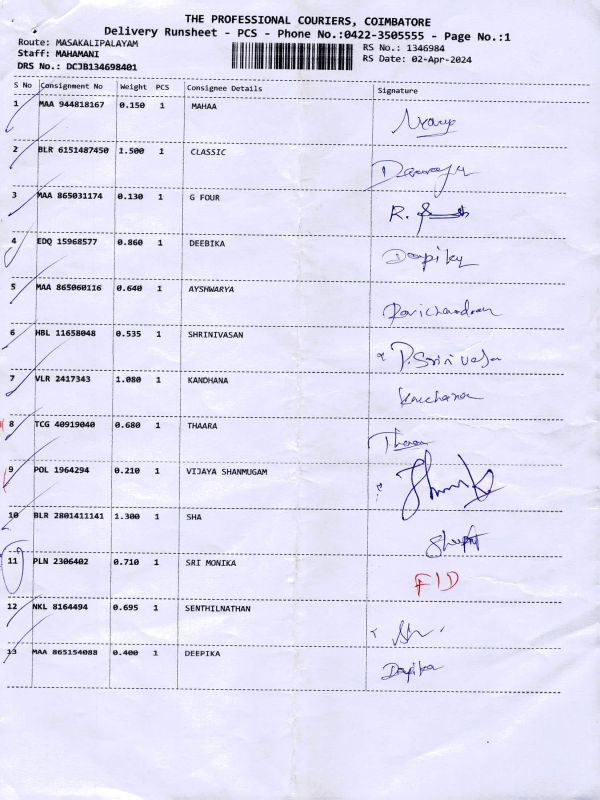 THE PROFESSIONAL COURIERS, COIMBATORE
Delivery Runsheet - PCS - Phone No.:0422-3505555 - Page No.:1
Route: MASAKALIPALAYAM RS No.: 1346984
Staff: MAHAMANI RS Date: 02-Apr-2024
DRS No.: DCJB134698401
S No Consignment No Weight PCS Consignee Details Signature
1 MAA 944818167 0.150 1 MAHAA
2 BLR 6151487450 1.500 1 CLASSIC
3 MAA 865031174 0.130 1 G FOUR R.
4 EDQ 15968577 0.860 1 DEEBIKA Deepika
5 MAA 865060116 0.640 1 AYSHWARYA Ravichandran
6 HBL 11658048 0.535 1 SHRINIVASAN P. Srinivasa
7 VLR 2417343 1.080 1 KANDHANA
8 TCG 40919040 0.680 1 THAARA
9 POL 1964294 0.210 1 VIJAYA SHANMUGAM
10 BLR 2801411141 1.300 1 SHA
11 PLN 2306402 0.710 1 SRI MONIKA FID
12 NKL 8164494 0.695 1 SENTHILNATHAN
13 MAA 865154088 0.400 1 DEEPIKA Depika